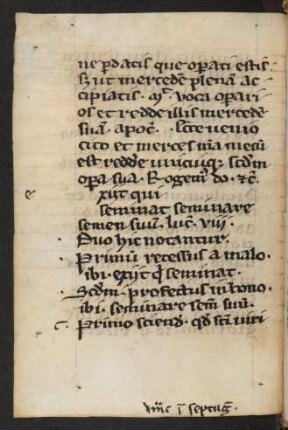 ne perdatis que operati estis
sꝫ ut mercedē plenā ac
cipiatis. Mͭ. voca operari
os et redde illis mercedē
suā. apoc̄. Ecce venio
cito et merces mea mecū
est reddē unicuiqꝫ scd̄m
opera sua. Rogem⁹ do. ⁊c̄.
Exiit qui
seminat seminare
semen suū. luc̄. viii.
Duo hic notantur.
Primū recessus a malo.
ibi. exiit q̄ seminat.
Scd̄m profectus in bono.
ibi. seminare sem̄ suū.
Primo sciend̄. qd̄ scī viri
e
dn̄ic̄ ī septuaḡ.